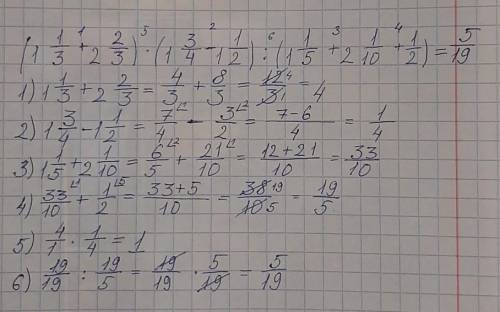 (1 1/3 +¹ 2 2/3) ·⁵ (1 3/4 -² 1 1/2) :⁶ (1 1/5 +³ 2 1/10 +⁴ 1/2) = 5/19
1) 1 1/3 + 2 2/3 = 4/3 + 8/3 = 12⁴/3₁ = 4
2) 1 3/4 - 1 1/2 = 7/4 ∟¹ - 3/2 ∟² = 7-6/4 = 1/4
3) 1 1/5 + 2 1/10 = 6/5 ∟² + 21/10 ∟¹ = 12+21/10 = 33/10
4) 33/10 ∟¹ + 1/2 ∟⁵ = 33+5/10 = 38¹⁹/10₅ = 19/5
5) 4/1 · 1/4 = 1
6) 19/19 : 19/5 = 19/19 · 5/19 = 5/19